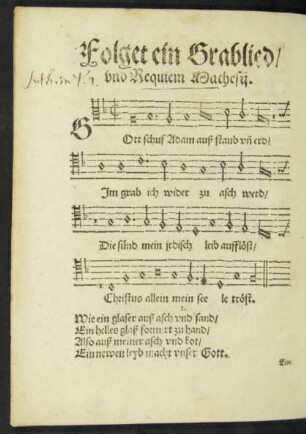 Folget ein Grablied/
vnd Requiem Mathesij.
GOtt schuf Adam auß staub vñ erd/
Im grab ich wider zu asch werd/
Die sünd mein jrdisch leib aufflöst/
Christus allein mein see le tröst.
Wie ein glaser auß asch vnd sand/
Ein helles glaß formirt zu hand/
Also auß meiner asch vnd kot/
Ein newen leyb macht vnser Gott.
Ein